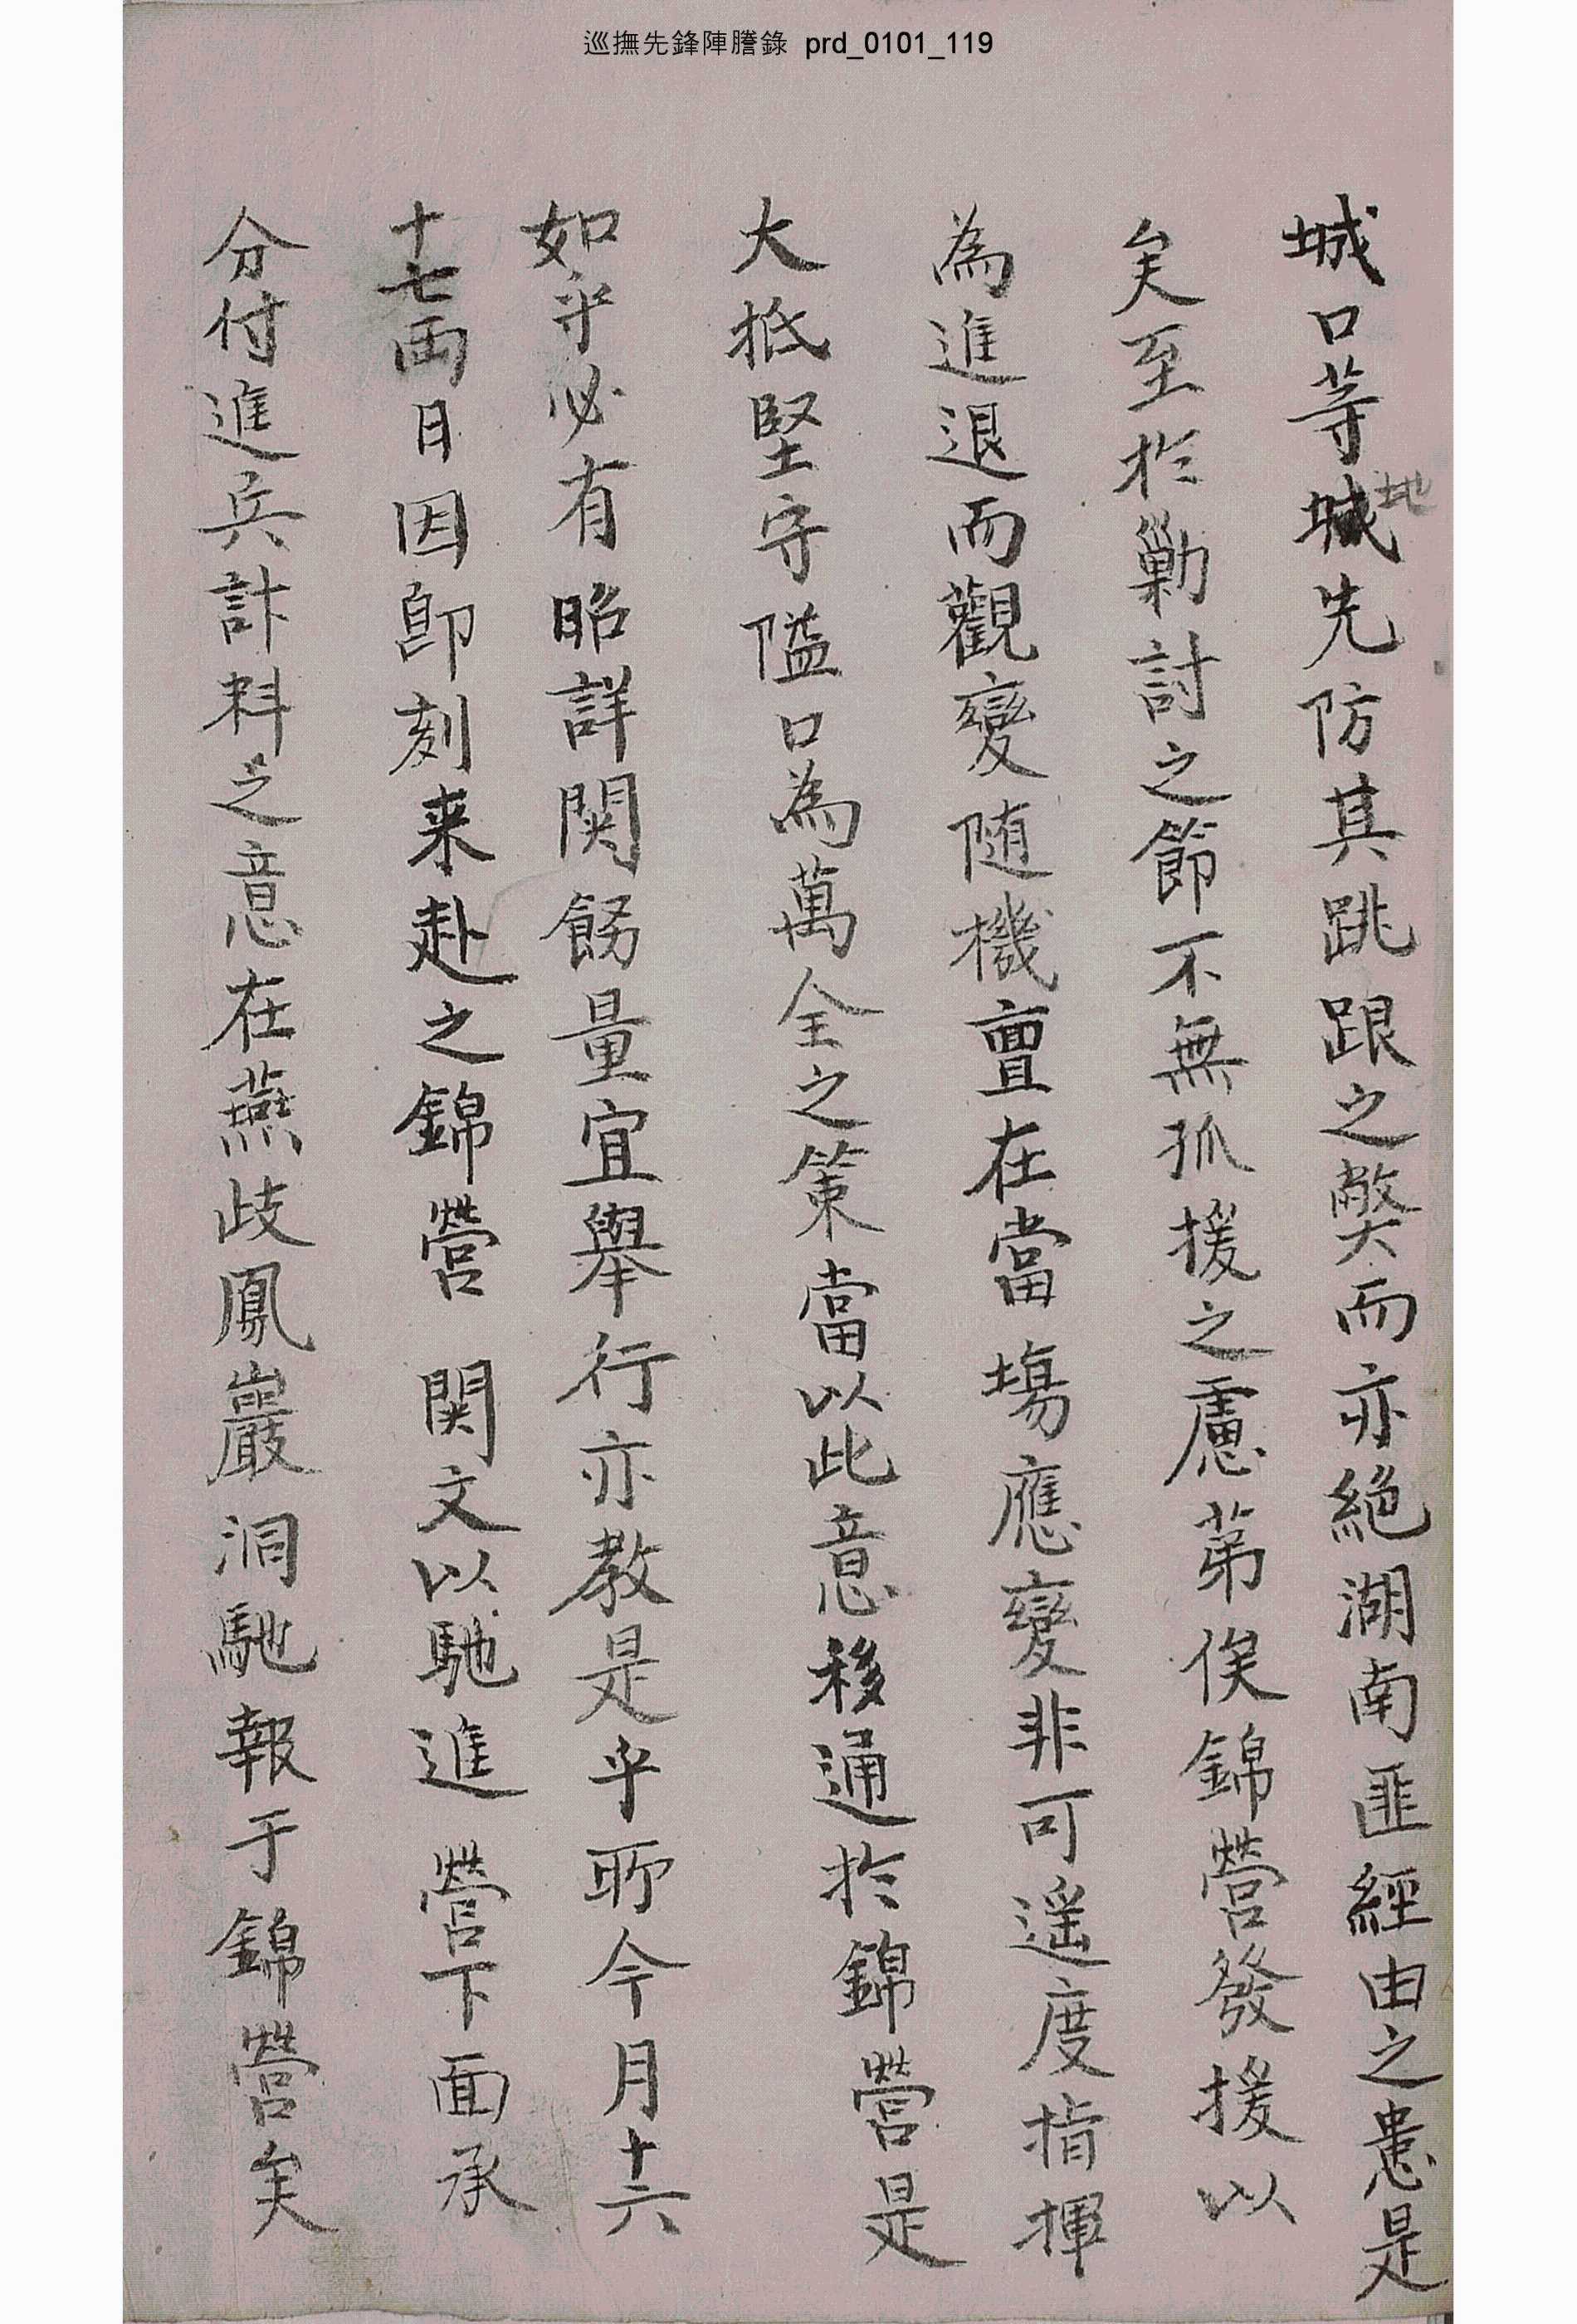 巡撫先鋒陣謄錄 prd_0101_119
城口等城地先防其跳踉之獘而亦絶湖南匪經由之患是
矣至於勦討之節不無孤援之慮苐俟錦營發援以
為進退而觀變随機亶在當塲應變非可遥度指揮
大抵堅守隘口為萬全之策當以此意移通於錦營是
如乎必有昭詳関餙量宜舉行亦教是乎所今月十六
十七両日因卽刻来赴之錦營 関文以馳進 營下面承
分付進兵計料之意在燕歧鳳巖洞馳報于錦營矣